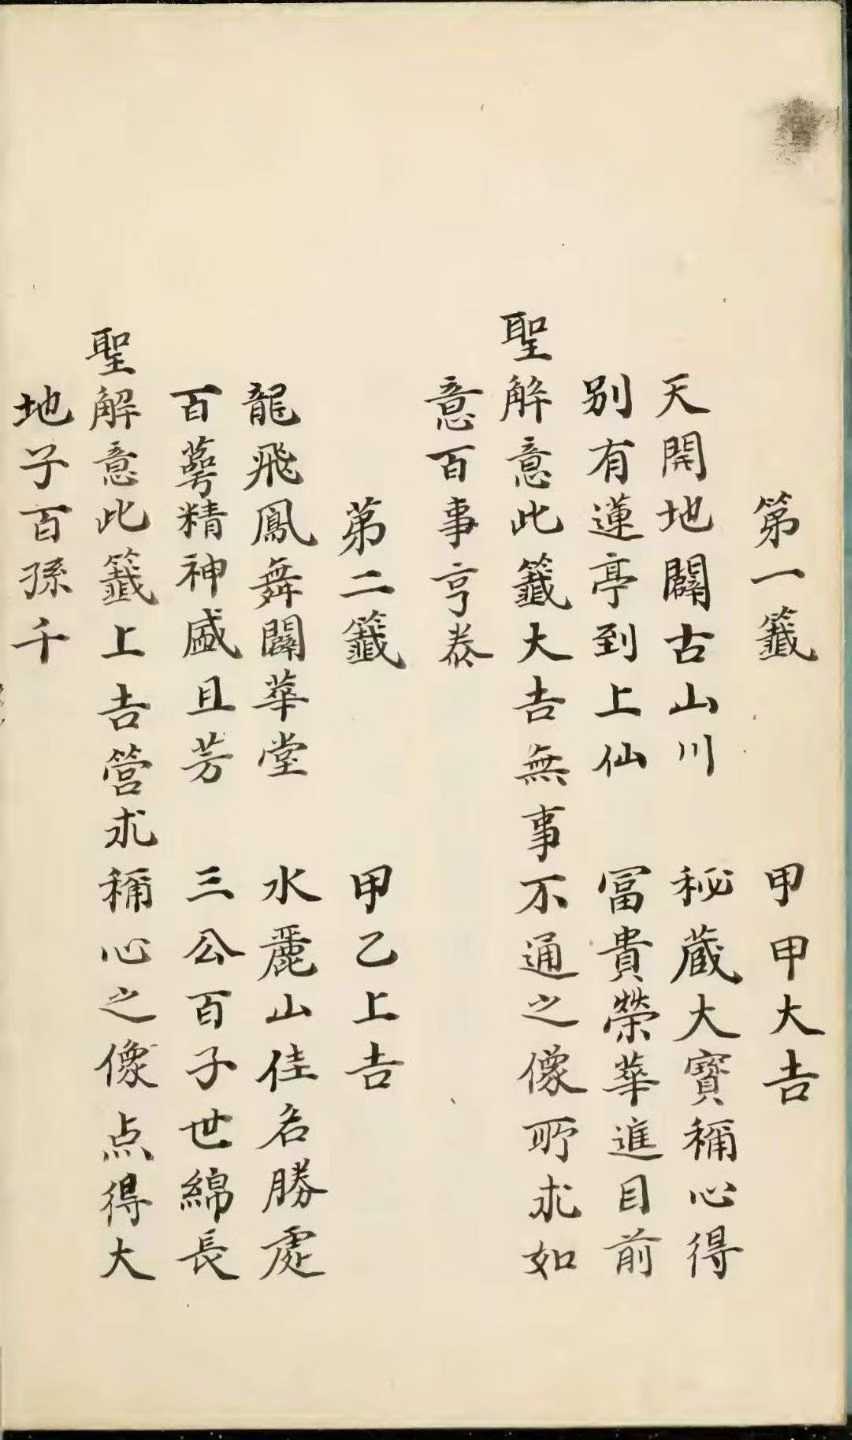 第一籤　甲甲大吉
天開地闢古山川　秘蔵大寳稱心得
别有蓮亭到上仙　冨貴榮華進目前
聖解意此籤大吉無事不通之像所求如
意百事亨泰
第二籤　甲乙上吉
龍飛鳳舞闢華堂　水麗山佳名勝處
百蕚精神盛且芳　三公百子世綿長
聖解意此籤上吉營求稱心之像点得大
地子百孫千